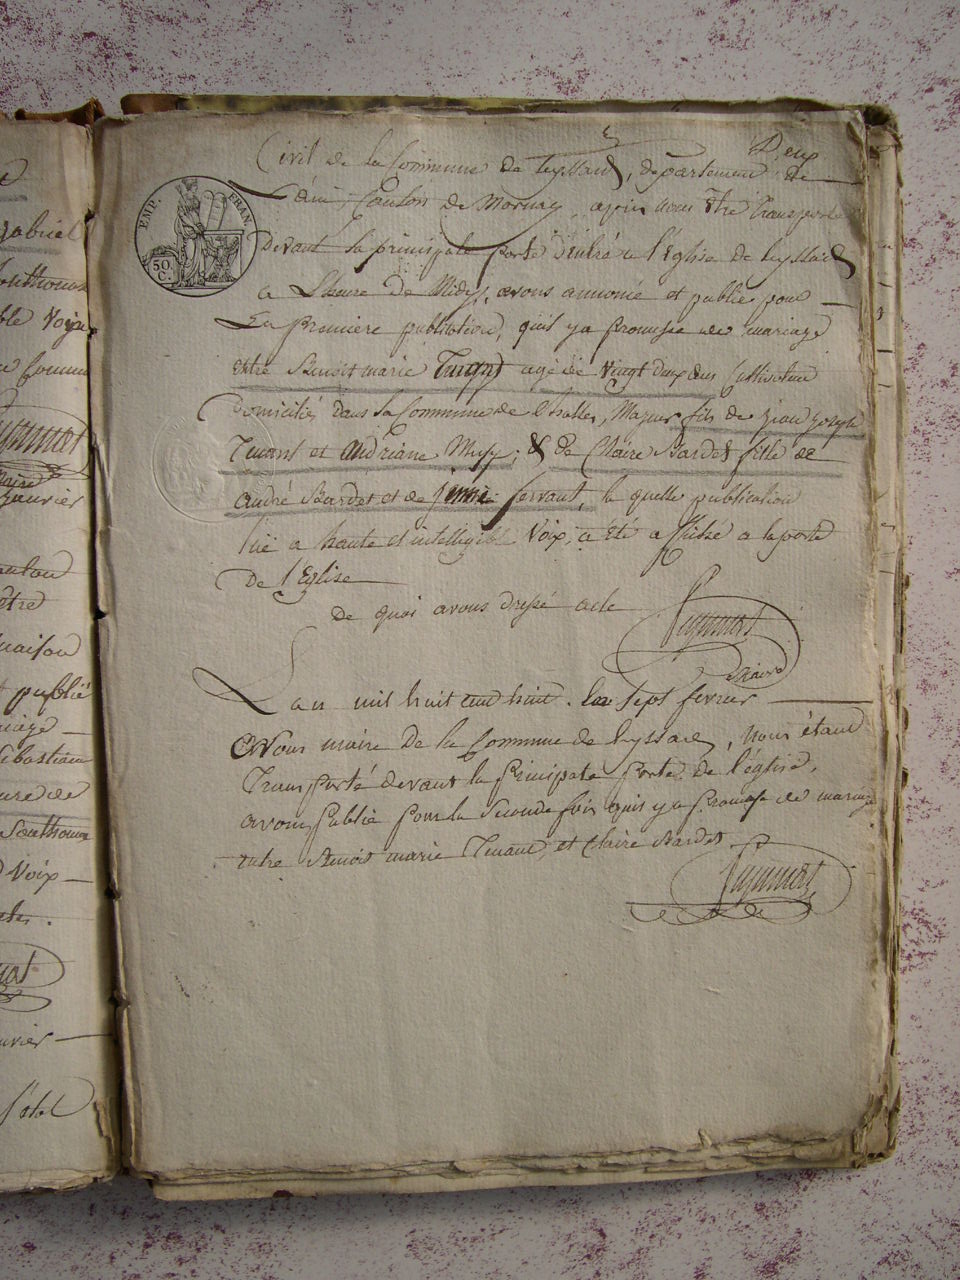 Deux
Civil de la Commune de Leyssard, departement de
L'ain Canton de Mornay, après nous être transporté
Devant la principale porte d'entré de l'Eglise de Leyssard
a L'heure de Midy, avons annoncé et publié pour
La première publication, quil y a promesse de mariage
entre Benoit marie Tenant agé de Vingt deux ans Cultivateur
Domicilié dans la Commune de Challes, Majeur fils de jean joseph
Tenant et Andriane Musy; & de Claire Bardet fille de
andré Bardet et de jenne servant, la quelle publication
lüe a haute et intelligible Voix, a été affiché a la porte
De l'Eglise
de quoi avons dressé acte
maire
L'an mil huit cent huit. Le sept fevrier
Nous maire de la Commune de Leyssard, Nous étant
Transporté devant la principale porte de l'église,
avons publié pour la seconde fois quis y a promesse de mariage
entre Benoit marie Tenant, et Claire Bardet
EMP. FRAN
50 C.
gabriel
ble Voix
Commu
janvier
être
maison
publié
sebastien
Voix
l'etat